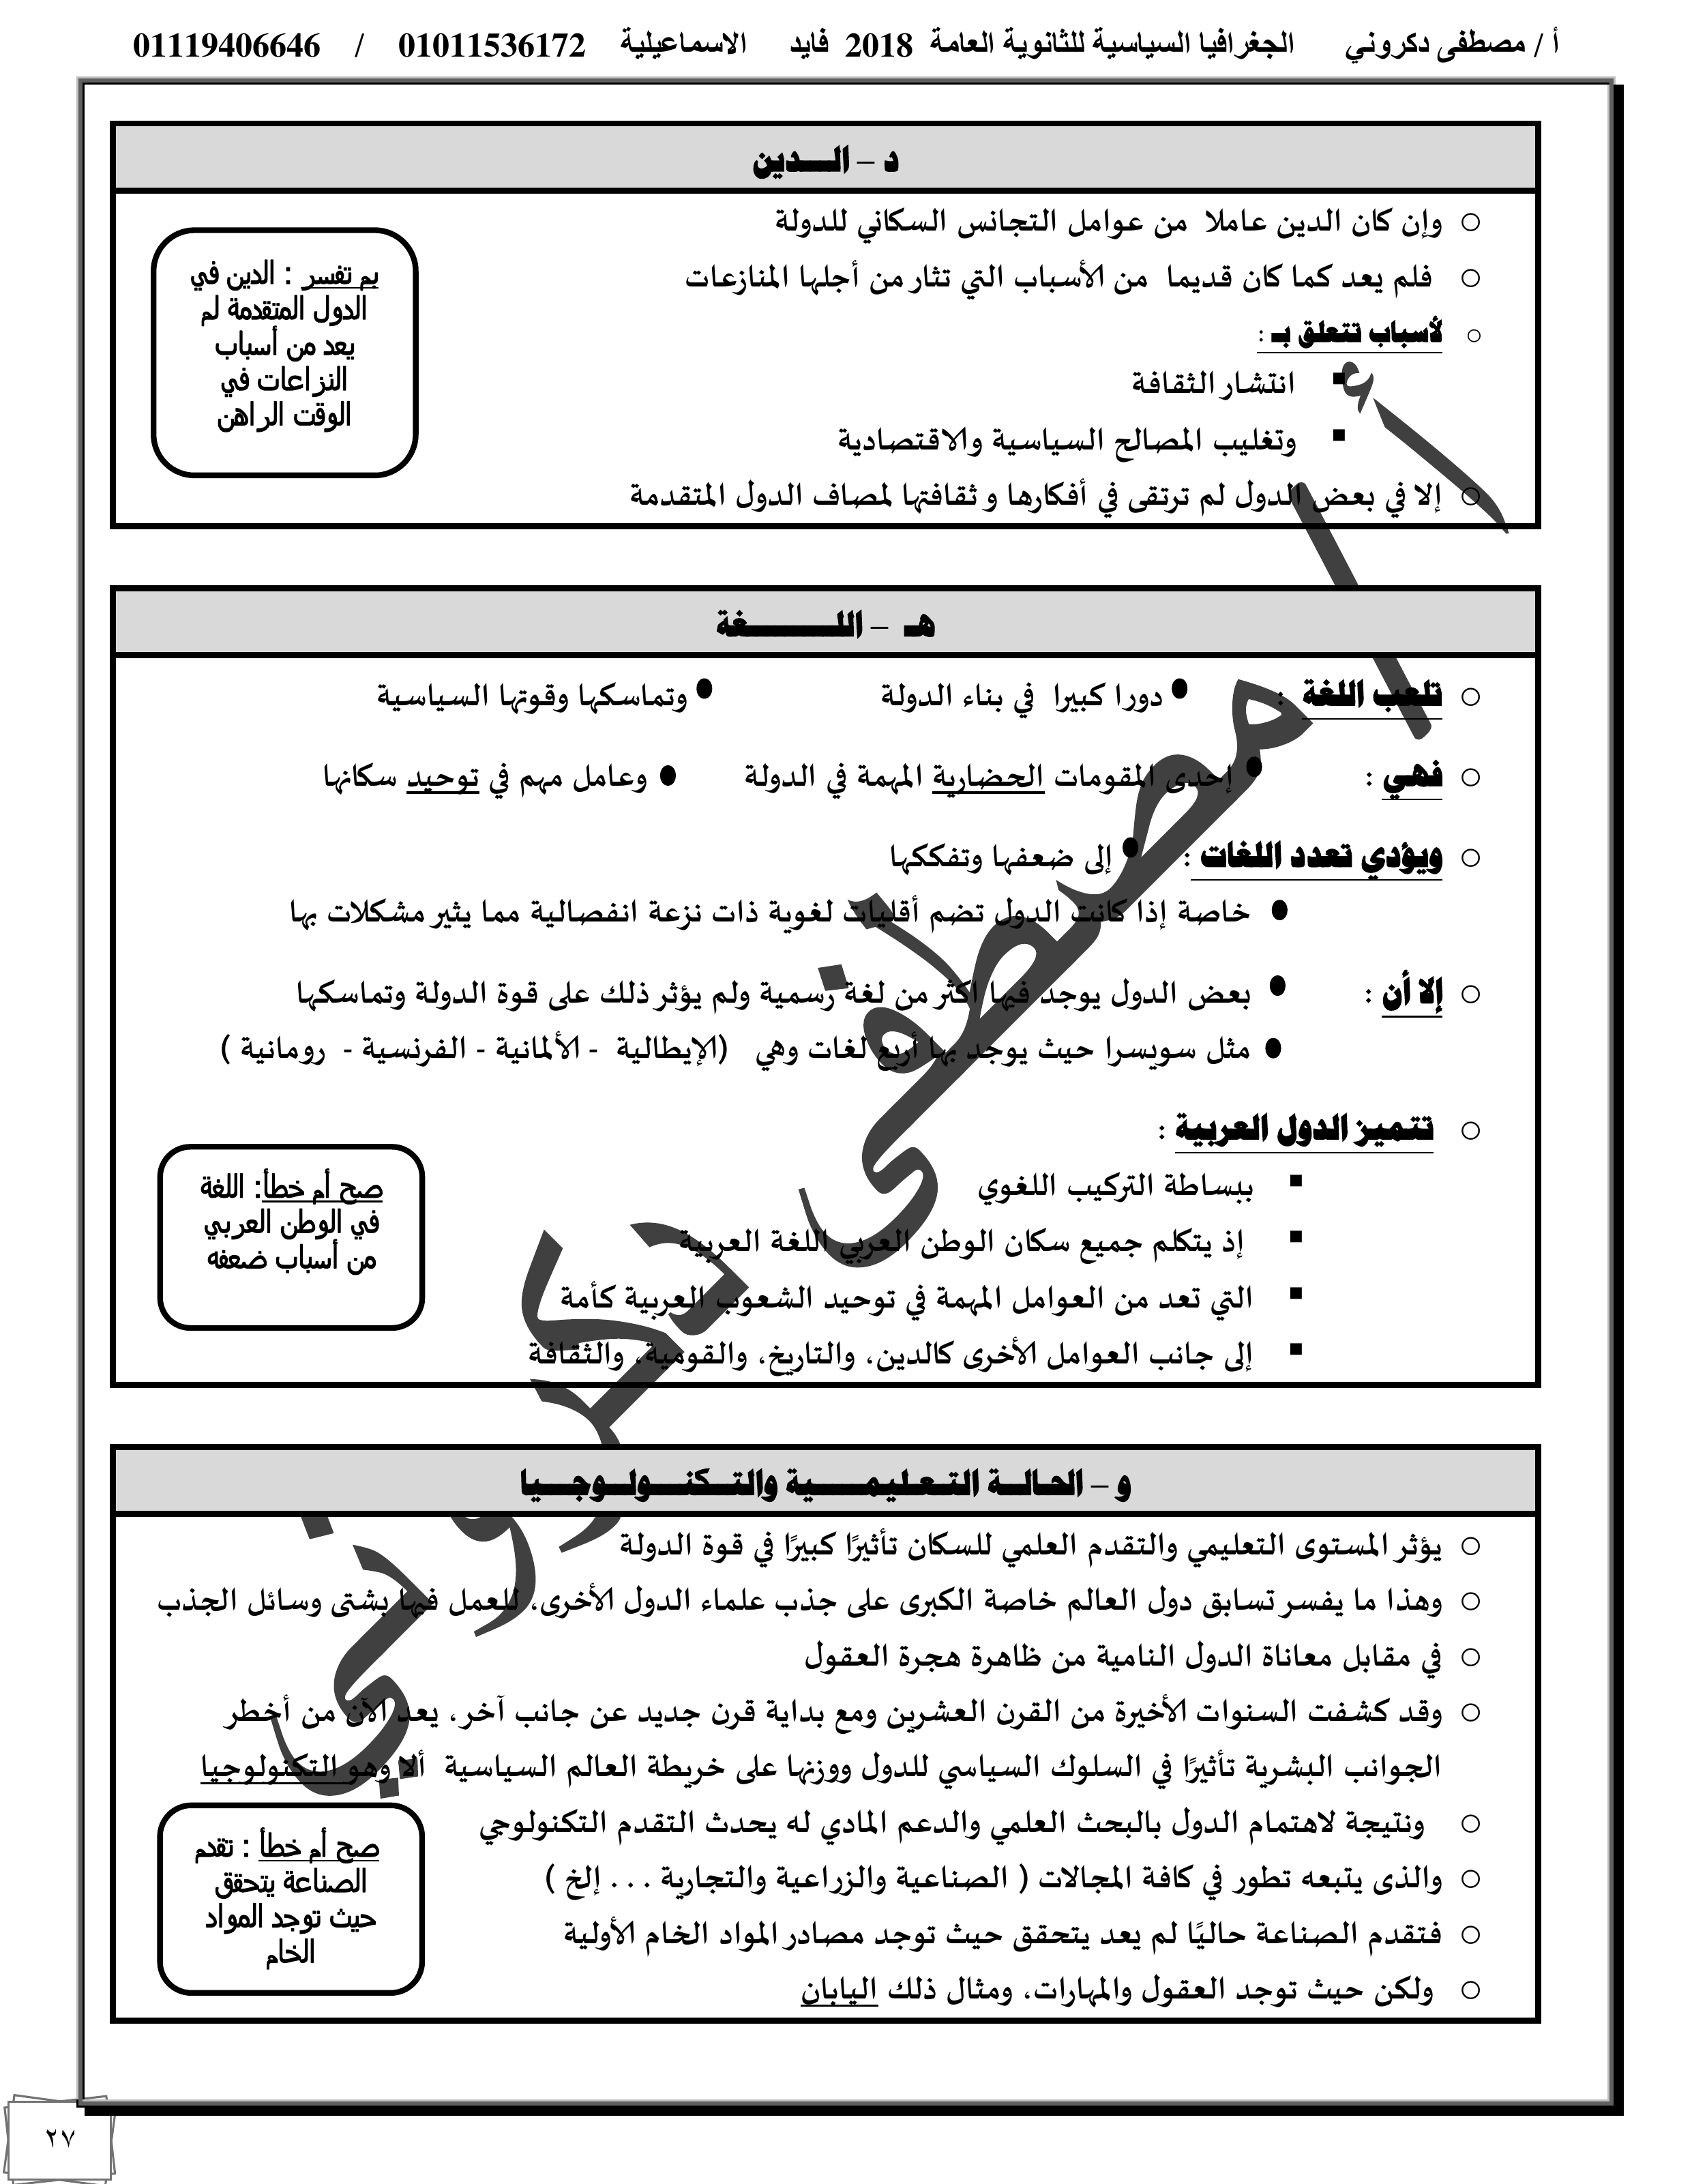 أ / مصطفى دكروني الجغرافيا السياسية للثانوية العامة 2018 فايد الاسماعيلية 01011536172 / 01119406646
د – الـــدين
وإن كان الدين عاملا من عوامل التجانس السكاني للدولة
فلم يعد كما كان قديما من الأسباب التي تثار من أجلها المنازعات
لأسباب تتعلق بـ :
انتشار الثقافة
وتغليب المصالح السياسية والاقتصادية
إلا في بعض الدول لم ترتقى في أفكارها و ثقافتها لمصاف الدول المتقدمة
بم تفسر : الدين في
الدول المتقدمة لم
يعد من أسباب
النزاعات في
الوقت الراهن
هـ – اللــــــــغة
تلعب اللغة : دورا كبيرا في بناء الدولة وتماسكها وقوتها السياسية
فهي : إحدى المقومات الحضارية المهمة في الدولة وعامل مهم في توحيد سكانها
ويؤدي تعدد اللغات : إلى ضعفها وتفككها
خاصة إذا كانت الدول تضم أقليات لغوية ذات نزعة انفصالية مما يثير مشكلات بها
إلا أن : بعض الدول يوجد فيها اكثر من لغة رسمية ولم يؤثر ذلك على قوة الدولة وتماسكها
مثل سويسرا حيث يوجد بها أربع لغات وهي (الإيطالية - الألمانية - الفرنسية - رومانية )
تتميز الدول العربية :
ببساطة التركيب اللغوي
إذ يتكلم جميع سكان الوطن العربي اللغة العربية
التي تعد من العوامل المهمة في توحيد الشعوب العربية كأمة
إلى جانب العوامل الأخرى كالدين، والتاريخ، والقومية، والثقافة
صح أم خطأ: اللغة
في الوطن العربي
من أسباب ضعفه
و – الحالــة التـعـليمـــــية والتــكنــــولــوجــــيا
يؤثر المستوى التعليمي والتقدم العلمي للسكان تأثيرًا كبيرًا في قوة الدولة
وهذا ما يفسر تسابق دول العالم خاصة الكبرى على جذب علماء الدول الأخرى، للعمل فيها بشتى وسائل الجذب
في مقابل معاناة الدول النامية من ظاهرة هجرة العقول
وقد كشفت السنوات الأخيرة من القرن العشرين ومع بداية قرن جديد عن جانب آخر، يعد الآن من أخطر
الجوانب البشرية تأثيرًا في السلوك السياسي للدول ووزنها على خريطة العالم السياسية ألا وهو التكنولوجيا
ونتيجة لاهتمام الدول بالبحث العلمي والدعم المادي له يحدث التقدم التكنولوجي
والذى يتبعه تطور في كافة المجالات ( الصناعية والزراعية والتجارية . . . إلخ )
فتقدم الصناعة حاليًا لم يعد يتحقق حيث توجد مصادر المواد الخام الأولية
ولكن حيث توجد العقول والمهارات، ومثال ذلك اليابان
صح أم خطأ : تقدم
الصناعة يتحقق
حيث توجد المواد
الخام
أ / مصطفى دكروني
٢٧